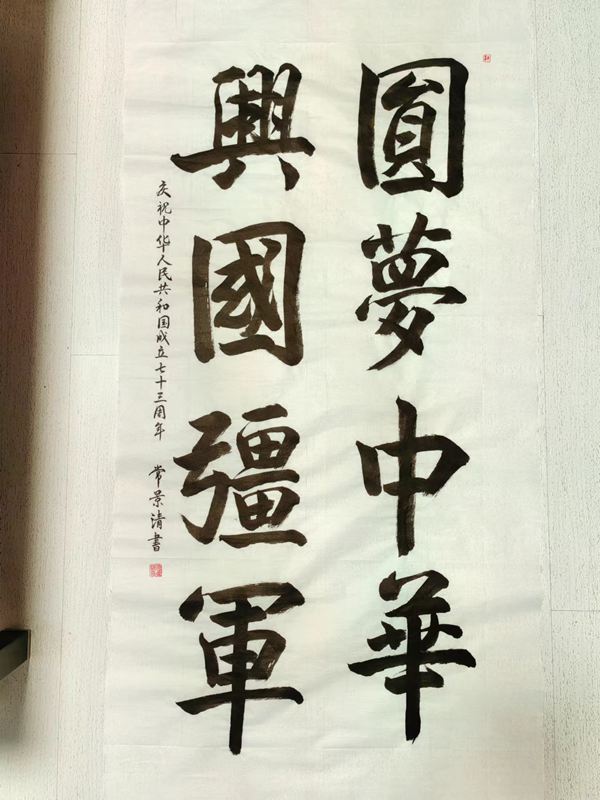 圓夢中華
興國彊軍
庆祝中华人民共和国成立七十三周年 常景清書